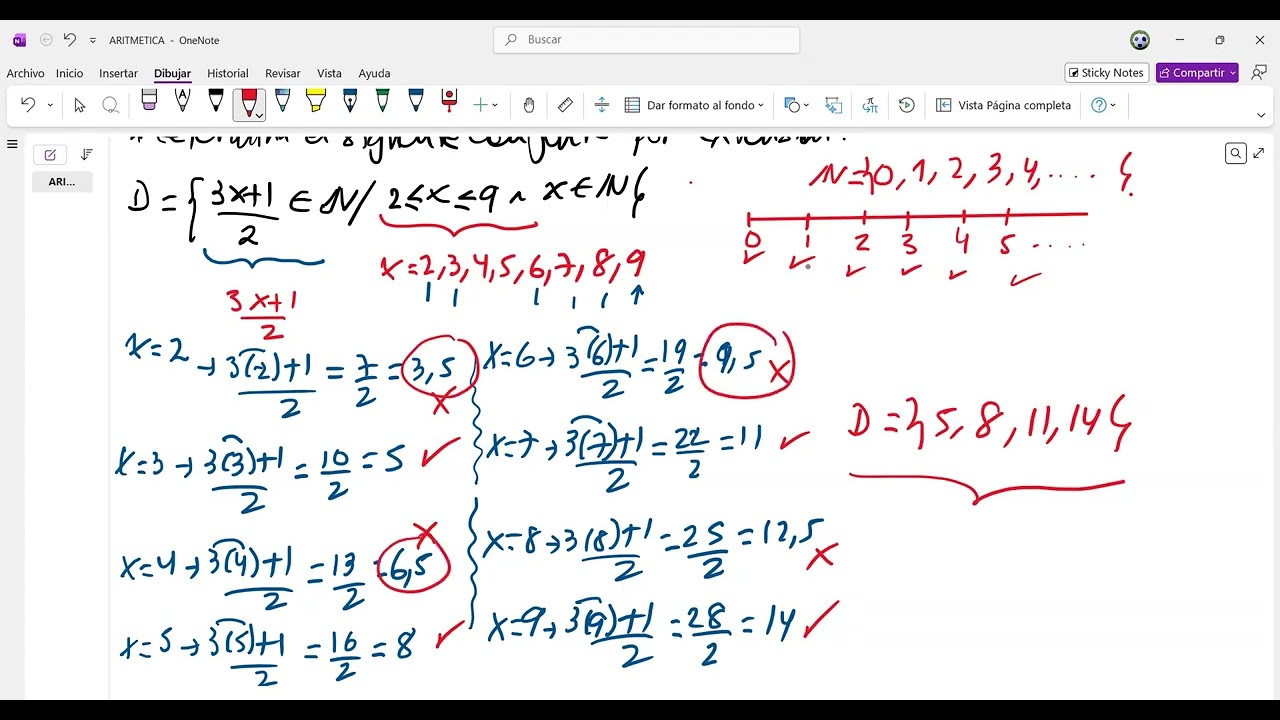 ARITMETICA - OneNote
Buscar
Archivo Inicio Insertar Dibujar Historial Revisar Vista Ayuda
Sticky Notes Compartir
Dar formato al fondo Vista Página completa
ARI...
el siguiente conjunto por extensión.
D = { 3x+1/2 ∈ N / 2≤x≤9 ∧ x∈N }
N={0, 1, 2, 3, 4, .... }
0 1 2 3 4 5 ....
x=2,3,4,5,6,7,8,9
3x+1/2
x=2 → 3(2)+1/2 = 7/2 = 3,5 x
x=3 → 3(3)+1/2 = 10/2 = 5 ✓
x=4 → 3(4)+1/2 = 13/2 = 6,5 x
x=5 → 3(5)+1/2 = 16/2 = 8 ✓
x=6 → 3(6)+1/2 = 19/2 = 9,5 x
x=7 → 3(7)+1/2 = 22/2 = 11 ✓
x=8 → 3(8)+1/2 = 25/2 = 12,5 x
x=9 → 3(9)+1/2 = 28/2 = 14 ✓
D = {5, 8, 11, 14}